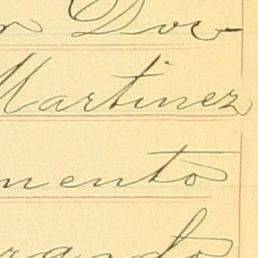 n Dov
Martinez
mento
rgando